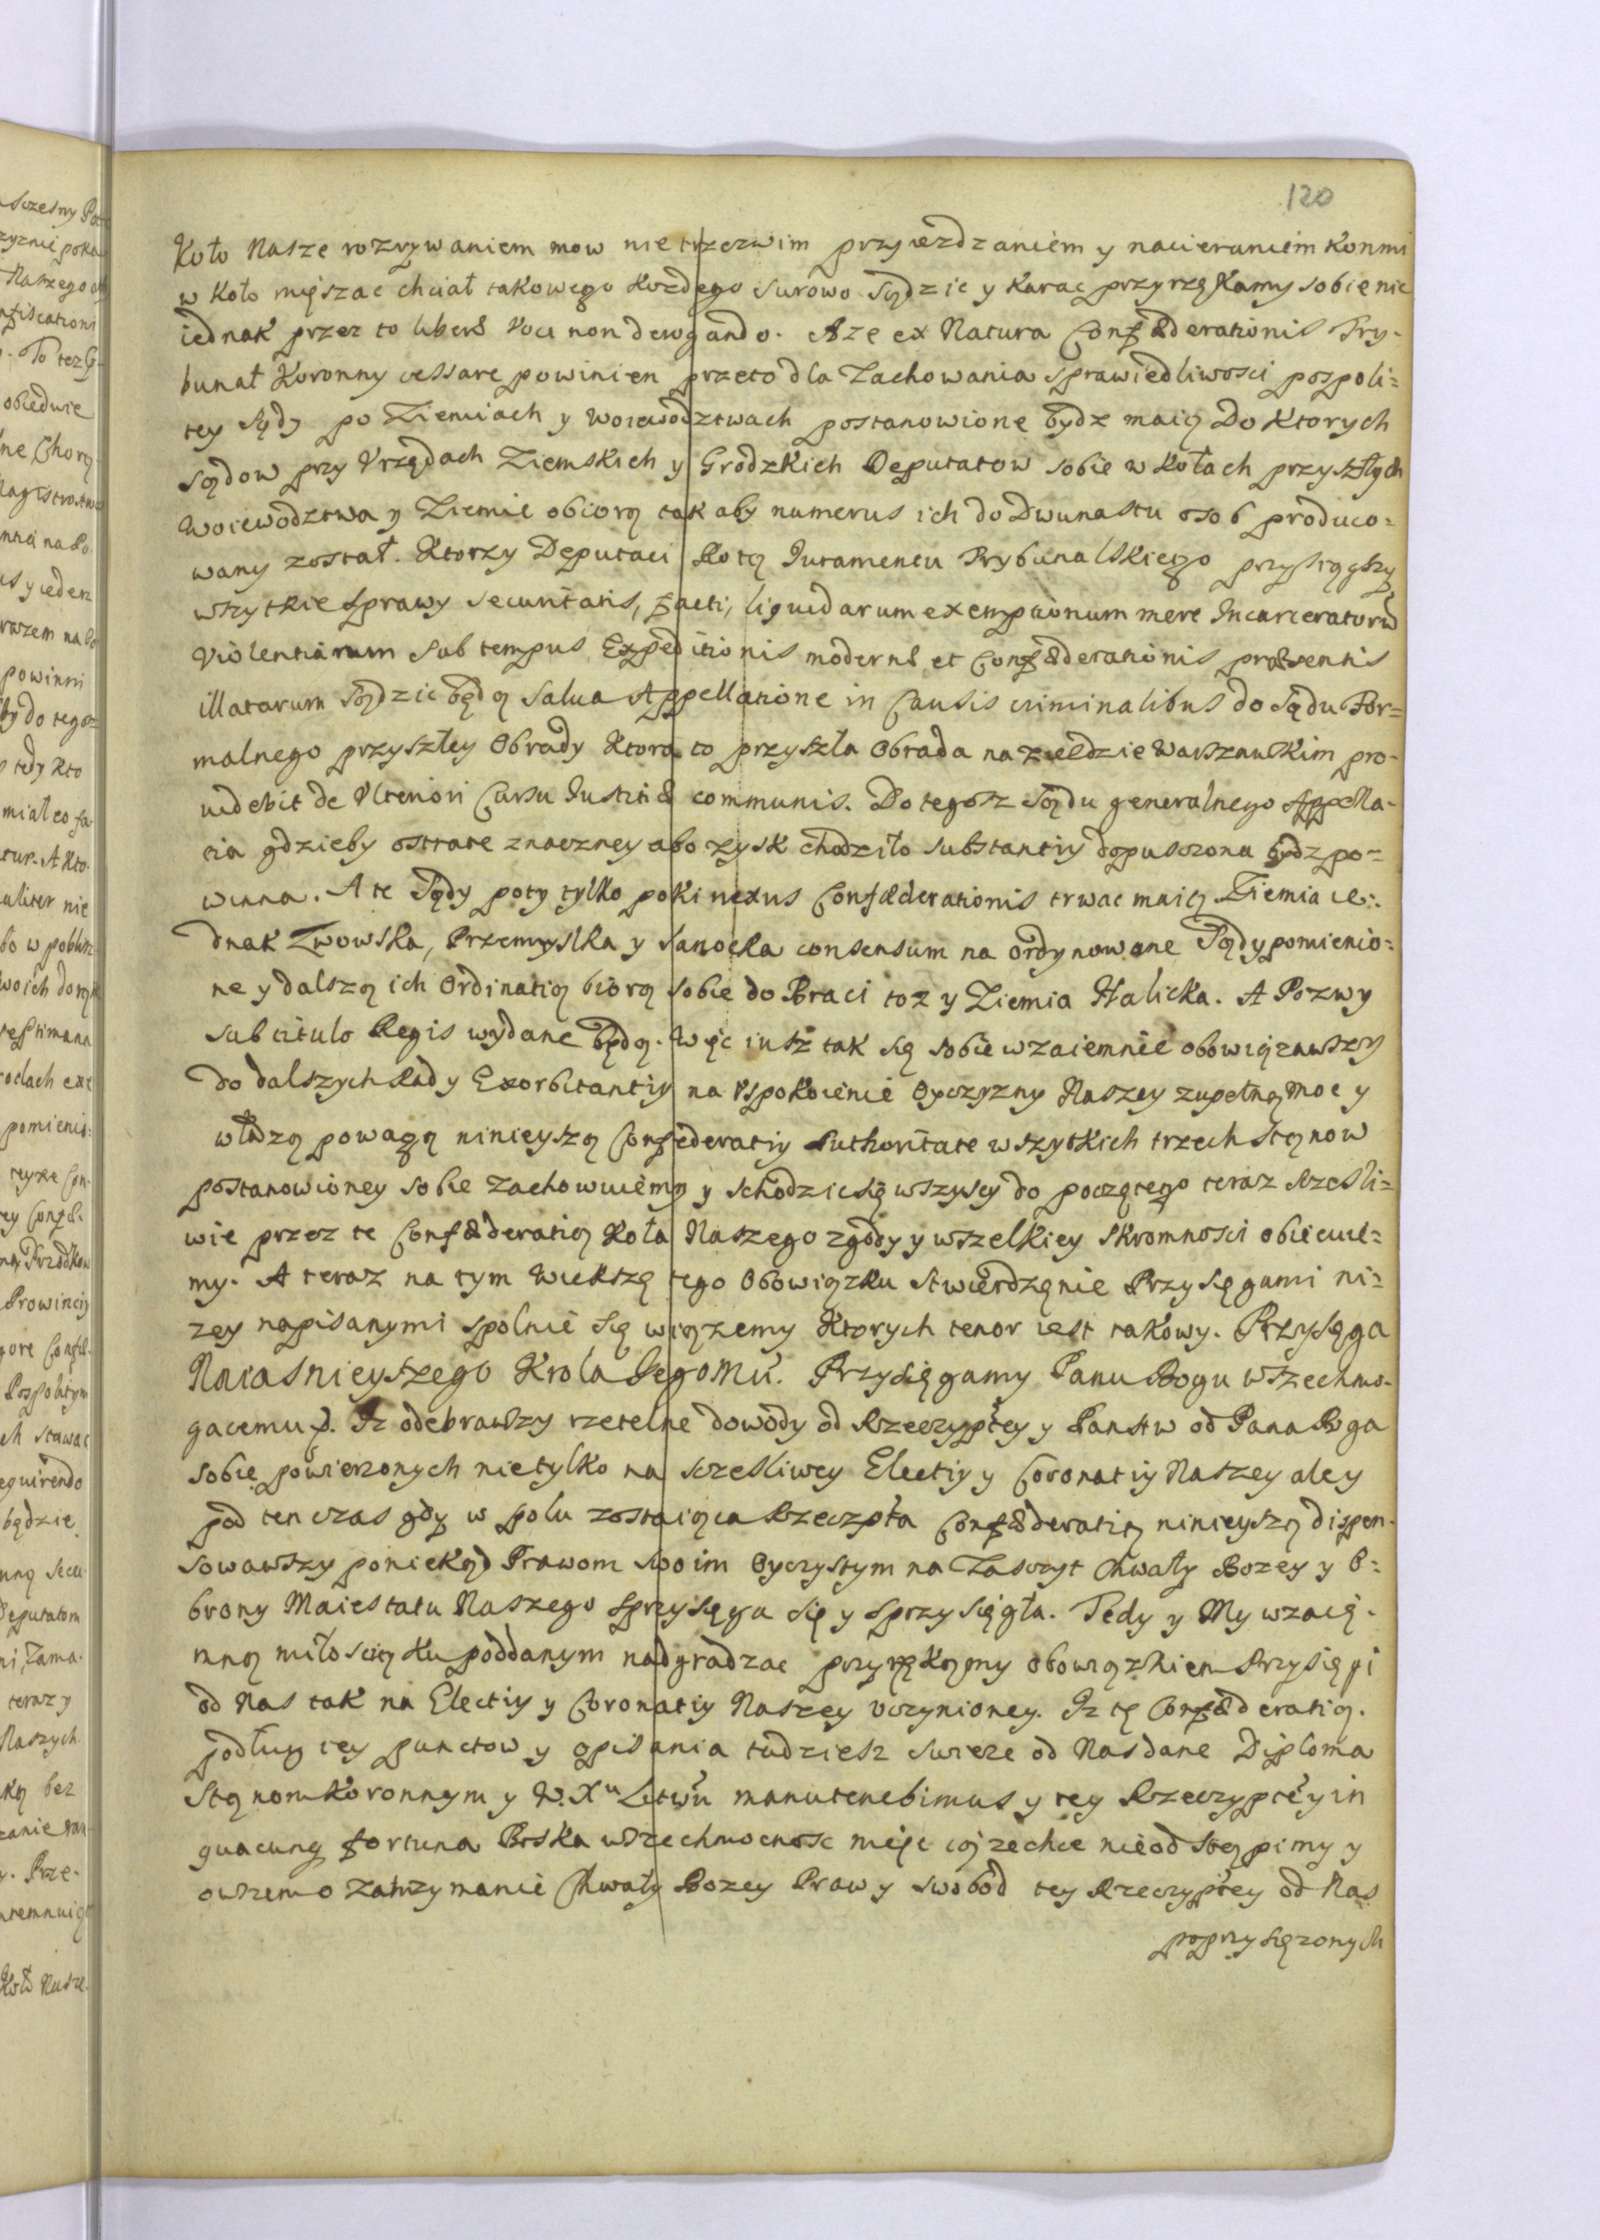 120
Koło Nasze rozrywaniem mow nietrzezwim przyiezdzaniem y nacieraniem konmi
w Koło mięszac chciał takowego Kozdego surowo sądzic y Karac przyrzękamy sobie nic
iednak przez to liberæ voci non derogando. A ze ex Natura Confæderationis Try-
bunał Koronny cessare powinien przeto dla Zachowania sprawiedliwosci pospoli=
tey Sądy po Ziemiach y Woiewodztwach postanowione bydz maią Do Ktorych
Sądow przy Vrzędach Ziemskich y Grodzkich Deputatow sobie w Kołach przyszłych
Woiewodztwa y Ziemie obiorą tak aby numerus ich do Dwunastu osob produco=
wany został. Ktorzy Deputaci Rotą Iuramentu Trybunalskiego przysiągszy
wszytkie sprawy securitatis, facti, liquidarum exemptionum mere Incarceratorū
Violentiarum sub tempus Expeditionis modernæ et Confæderationis præsentis
illatarum sądzic będą salua Appellatione in Causis criminalibus do Sądu For=
malnego przyszłey Obrady Ktora to przyszła Obrada na zieździe Warszawskim pro-
videbit de Vlteriori Cursu Iustitiæ communis. Do tegosz Sądu generalnego Appella-
cia gdzieby ostrate znaczney abo zysk chodziło substantiy dopuszczona bydz po=
winna. A te Sądy poty tylko poki nexus Confæderationis trwac maią Ziemia ie=
dnak Lwowska, Przemyslka y Sanocka consensum na ordynowane Sądy pomienio=
ne y dalszą ich Ordinatią biorą sobie do Braci toz y Ziemia Halicka. A Pozwy
sub titulo Regis wydane będą. Więc iusz tak się sobie wzaiemnie obowiązawszy
do dalszych Rad y Exorbitantiy na Vspokoienie Oyczyzny Naszey zupełną moc y
władzą powagą ninieyszą Confederatiy Authoritate wszytkich trzech Stanow
postanowioney sobie zachowuiemy y schodzic się wszyscy do poczętego teraz sczesli=
wie przez te Confæderatią Koła Naszego zgody y wszelkiey skromnosci obiecuie=
my. A teraz na tym Wiekszę tego Obowiązku stwierdzęnie Przysięgami ni=
zey napisanymi spolnie się wiązemy Ktorych tenor iest takowy. Przysięga
Naiasnieyszego Krola Jegomu. Przysięgamy Panu Bogu wszechmo-
gacemu p. Iz odebrawszy rzetelne dowody od Rzeczyptey y Panstw od Pana Boga
sobie powierzonych nietylko na sczesliwey Electiy y Coronatiy Naszey ale y
pod ten czas gdy w polu zostaiąca Rzeczpta Confæderatią ninieyszą dispen-
sowawszy poniekąd Prawom swoim Oyczystym na Zasczyt Chwały Bozey y O=
brony Maiestatu Naszego sprzysięga się y sprzysięgła. Tedy y My wzaię-
mną miłoscią ku poddanym nadgradzac przyrzękamy obowiązkiem Przysięgi
od Nas tak na Electiy y Coronatiy Naszey vczynioney. Iz tę Confæderatią
podług tey punctow y opisania tudziesz swieze od Nas dane Diploma
Stanom Koronnym y W. Xu Litwu manutenebimus y tey Rzeczyptey in
quacunq fortuna Boska wszechmocnosc miec ią zechce nieodstąpimy y
owszem o Zatrzymanie Chwały Bozey Praw y swobod tey Rzeczyptey od Nas
poprzysięzonych